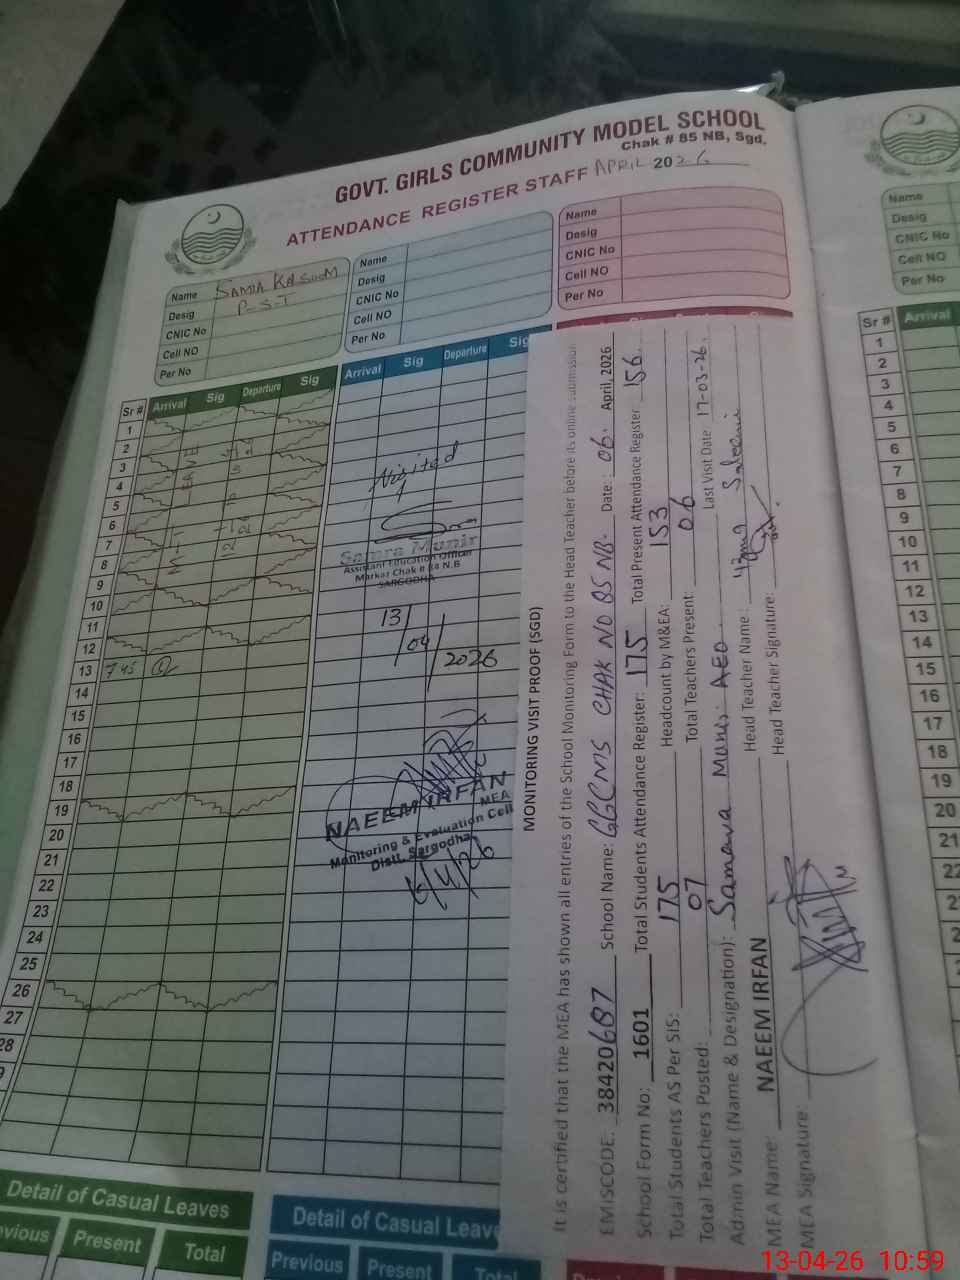 GOVT. GIRLS COMMUNITY MODEL SCHOOL
Chak # 85 NB, Sgd.
ATTENDANCE REGISTER STAFF APRIL 2026
Name SAMIA KALSOOM
Desig P-S-T
CNIC No
Cell NO
Per No
Name
Desig
CNIC No
Cell NO
Per No
Name
Desig
CNIC No
Cell NO
Per No
Sr # Arrival Sig Departure Sig
1
2
3
4
5
6
7
8
9
10
11
12
13 7 45
14
15
16
17
18
19
20
21
22
23
24
25
26
27
28
Arrival Sig Departure Sig
Visited
Samra Munir
Assistant Education Officer
Markaz Chak # 84 N.B
SARGODHA
13/04/2026
NAEEM IRFAN
MEA
Monitoring & Evaluation Cell
Distt. Sargodha
6/4/26
Detail of Casual Leaves
Previous Present Total
Detail of Casual Leaves
Previous Present Total
MONITORING VISIT PROOF (SGD)
It is certified that the MEA has shown all entries of the School Monitoring Form to the Head Teacher before its online submission
EMISCODE: 38420687 School Name: GGCMS CHAK NO 85 NB. Date: 06. April, 2026
School Form No: 1601 Total Students Attendance Register: 175 Total Present Attendance Register 156
Total Students AS Per SIS: 175 Headcount by M&EA: 153
Total Teachers Posted: 07 Total Teachers Present: 06
Admin Visit (Name & Designation): AEO Last Visit Date 17-03-26.
MEA Name: NAEEM IRFAN Head Teacher Name:
MEA Signature: Head Teacher Signature:
Name
Desig
CNIC No
Cell NO
Per No
Sr # Arrival
1
2
3
4
5
6
7
8
9
10
11
12
13
14
15
16
17
18
19
20
21
22
13-04-26 10:59